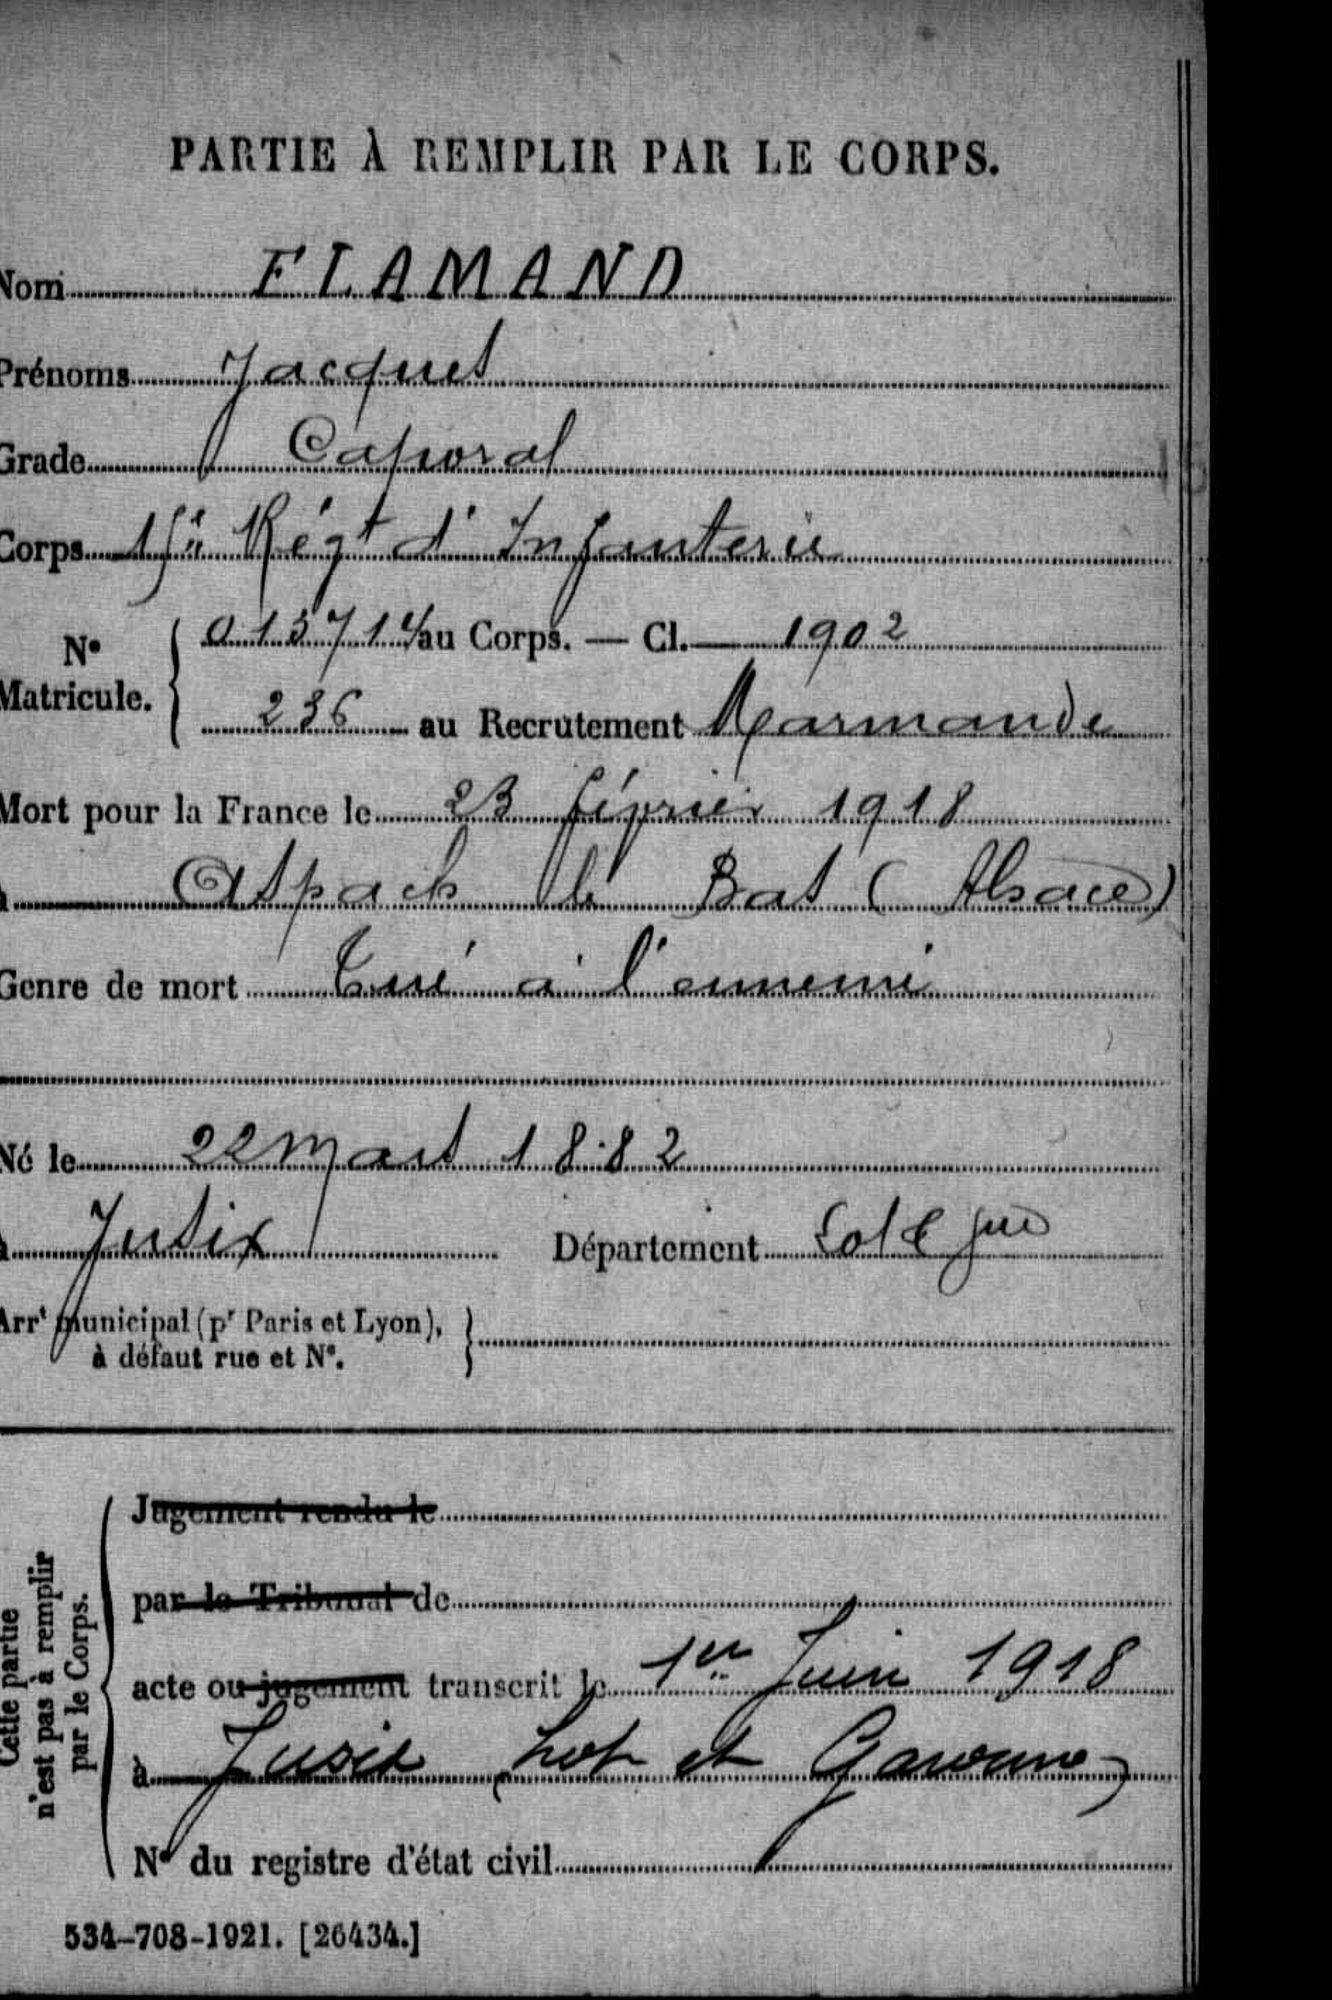 PARTIE À REMPLIR PAR LE CORPS.
Nom FLAMAND
Prénoms Jacques
Grade Caporal
Corps 15è Régt d'Infanterie
No Matricule. { 013714 au Corps. — Cl. 1902
236 au Recrutement Marmande
Mort pour la France le 23 février 1918
à Aspach le Bas (Alsace)
Genre de mort Tué à l'ennemi
Né le 22 Mars 1882
à Jusix Département Lot & Gne
Arrt municipal (pr Paris et Lyon), à défaut rue et No.
Cette partie n'est pas à remplir par le Corps.
Jugement rendu le
par le Tribunal de
acte ou jugement transcrit le 1er Juin 1918
à Jusix (Lot et Garonne)
No du registre d'état civil
534-708-1921. [26434.]